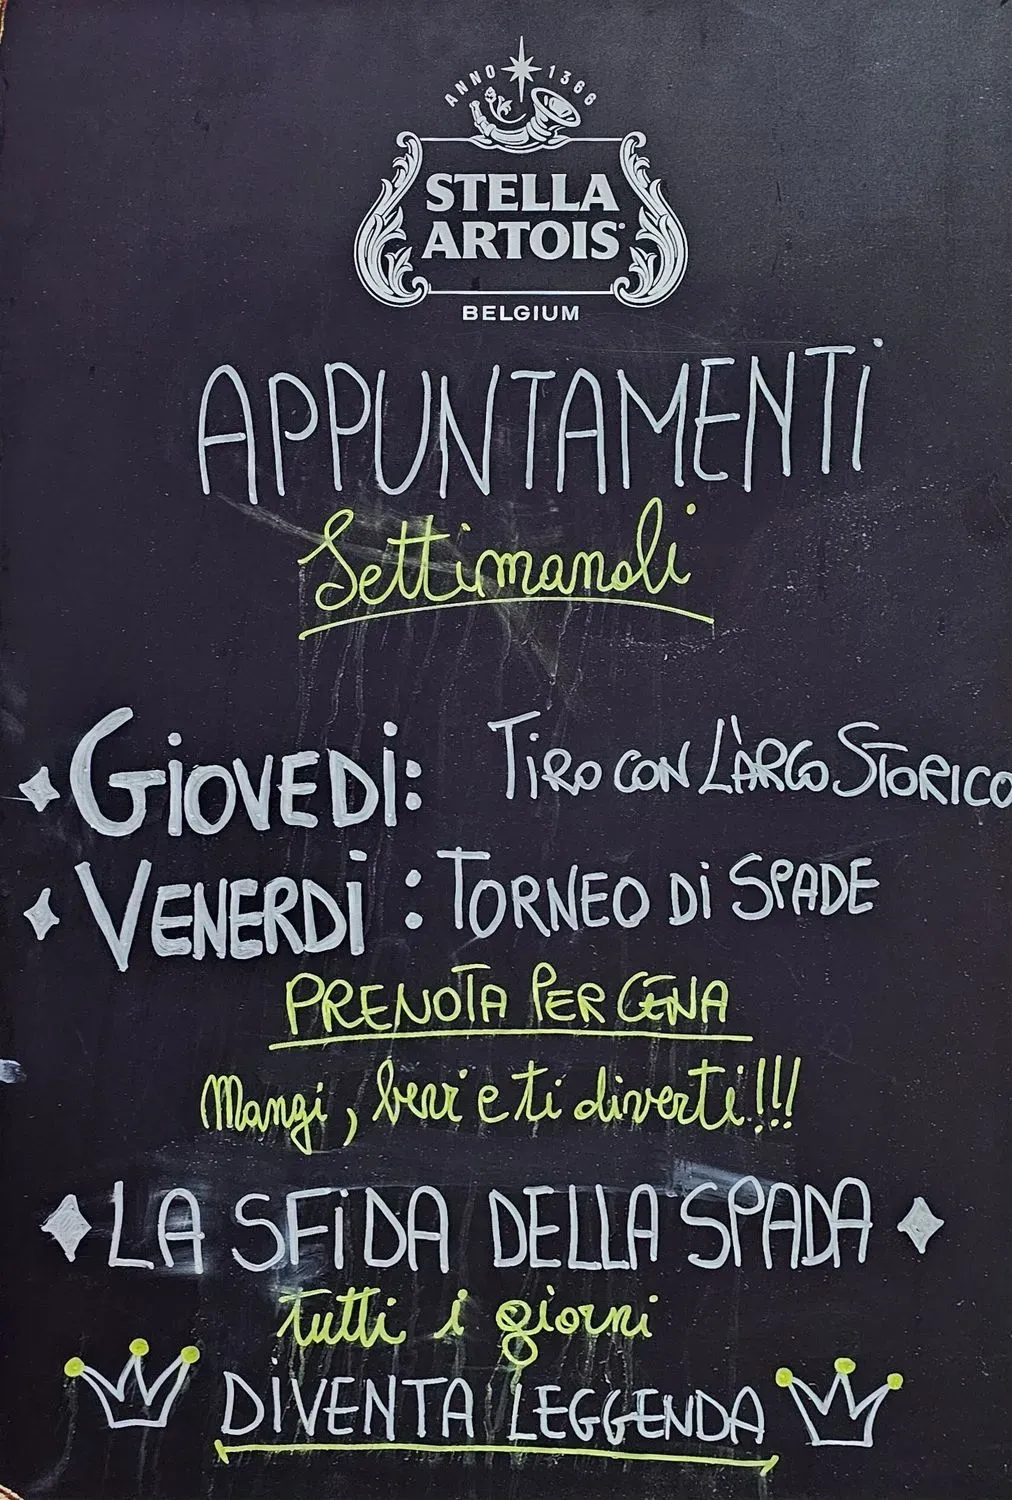 ANNO 1366
STELLA
ARTOIS
BELGIUM
APPUNTAMENTi
Settimanali
GiOVEDì: TiRO CON L'ARCO STORICO
VENERDì: TORNEO Di SPADE
PRENOTA PER CENA
Mangi, bevi e ti diverti!!!
LA SFiDA DELLA SPADA
tutti i giorni
DiVENTA LEGGENDA